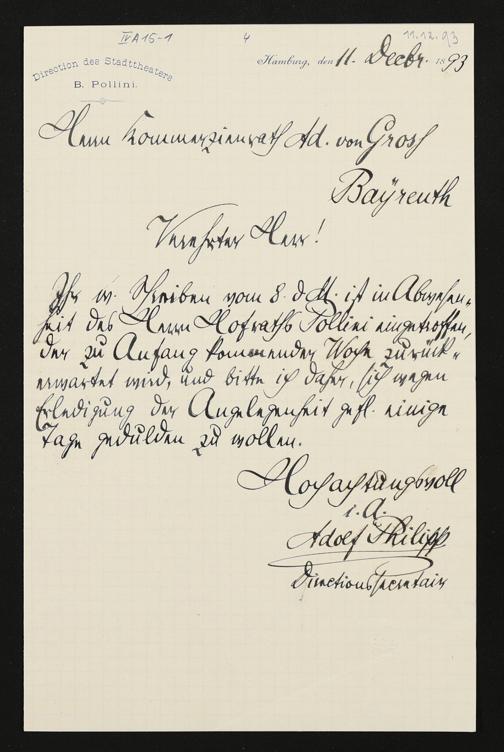 IV A 15-1
4
11.12.93
Direction des Stadttheaters
B. Pollini.
Hamburg, den 11. Decbr. 1893
Herrn Kommerzienrath Ad. von Gross
Bayreuth
Verehrter Herr!
Ihr w. Schreiben vom 8. d. M. ist in Abwesen-
heit des Herrn Hofraths Pollini eingetroffen,
der zu Anfang kommender Woche zurück-
erwartet wird, und bitte ich daher, sich wegen
Erledigung der Angelegenheit gefl. einige
Tage gedulden zu wollen.
Hochachtungsvoll
i. A.
Adolf Philipp
Directionssecretair